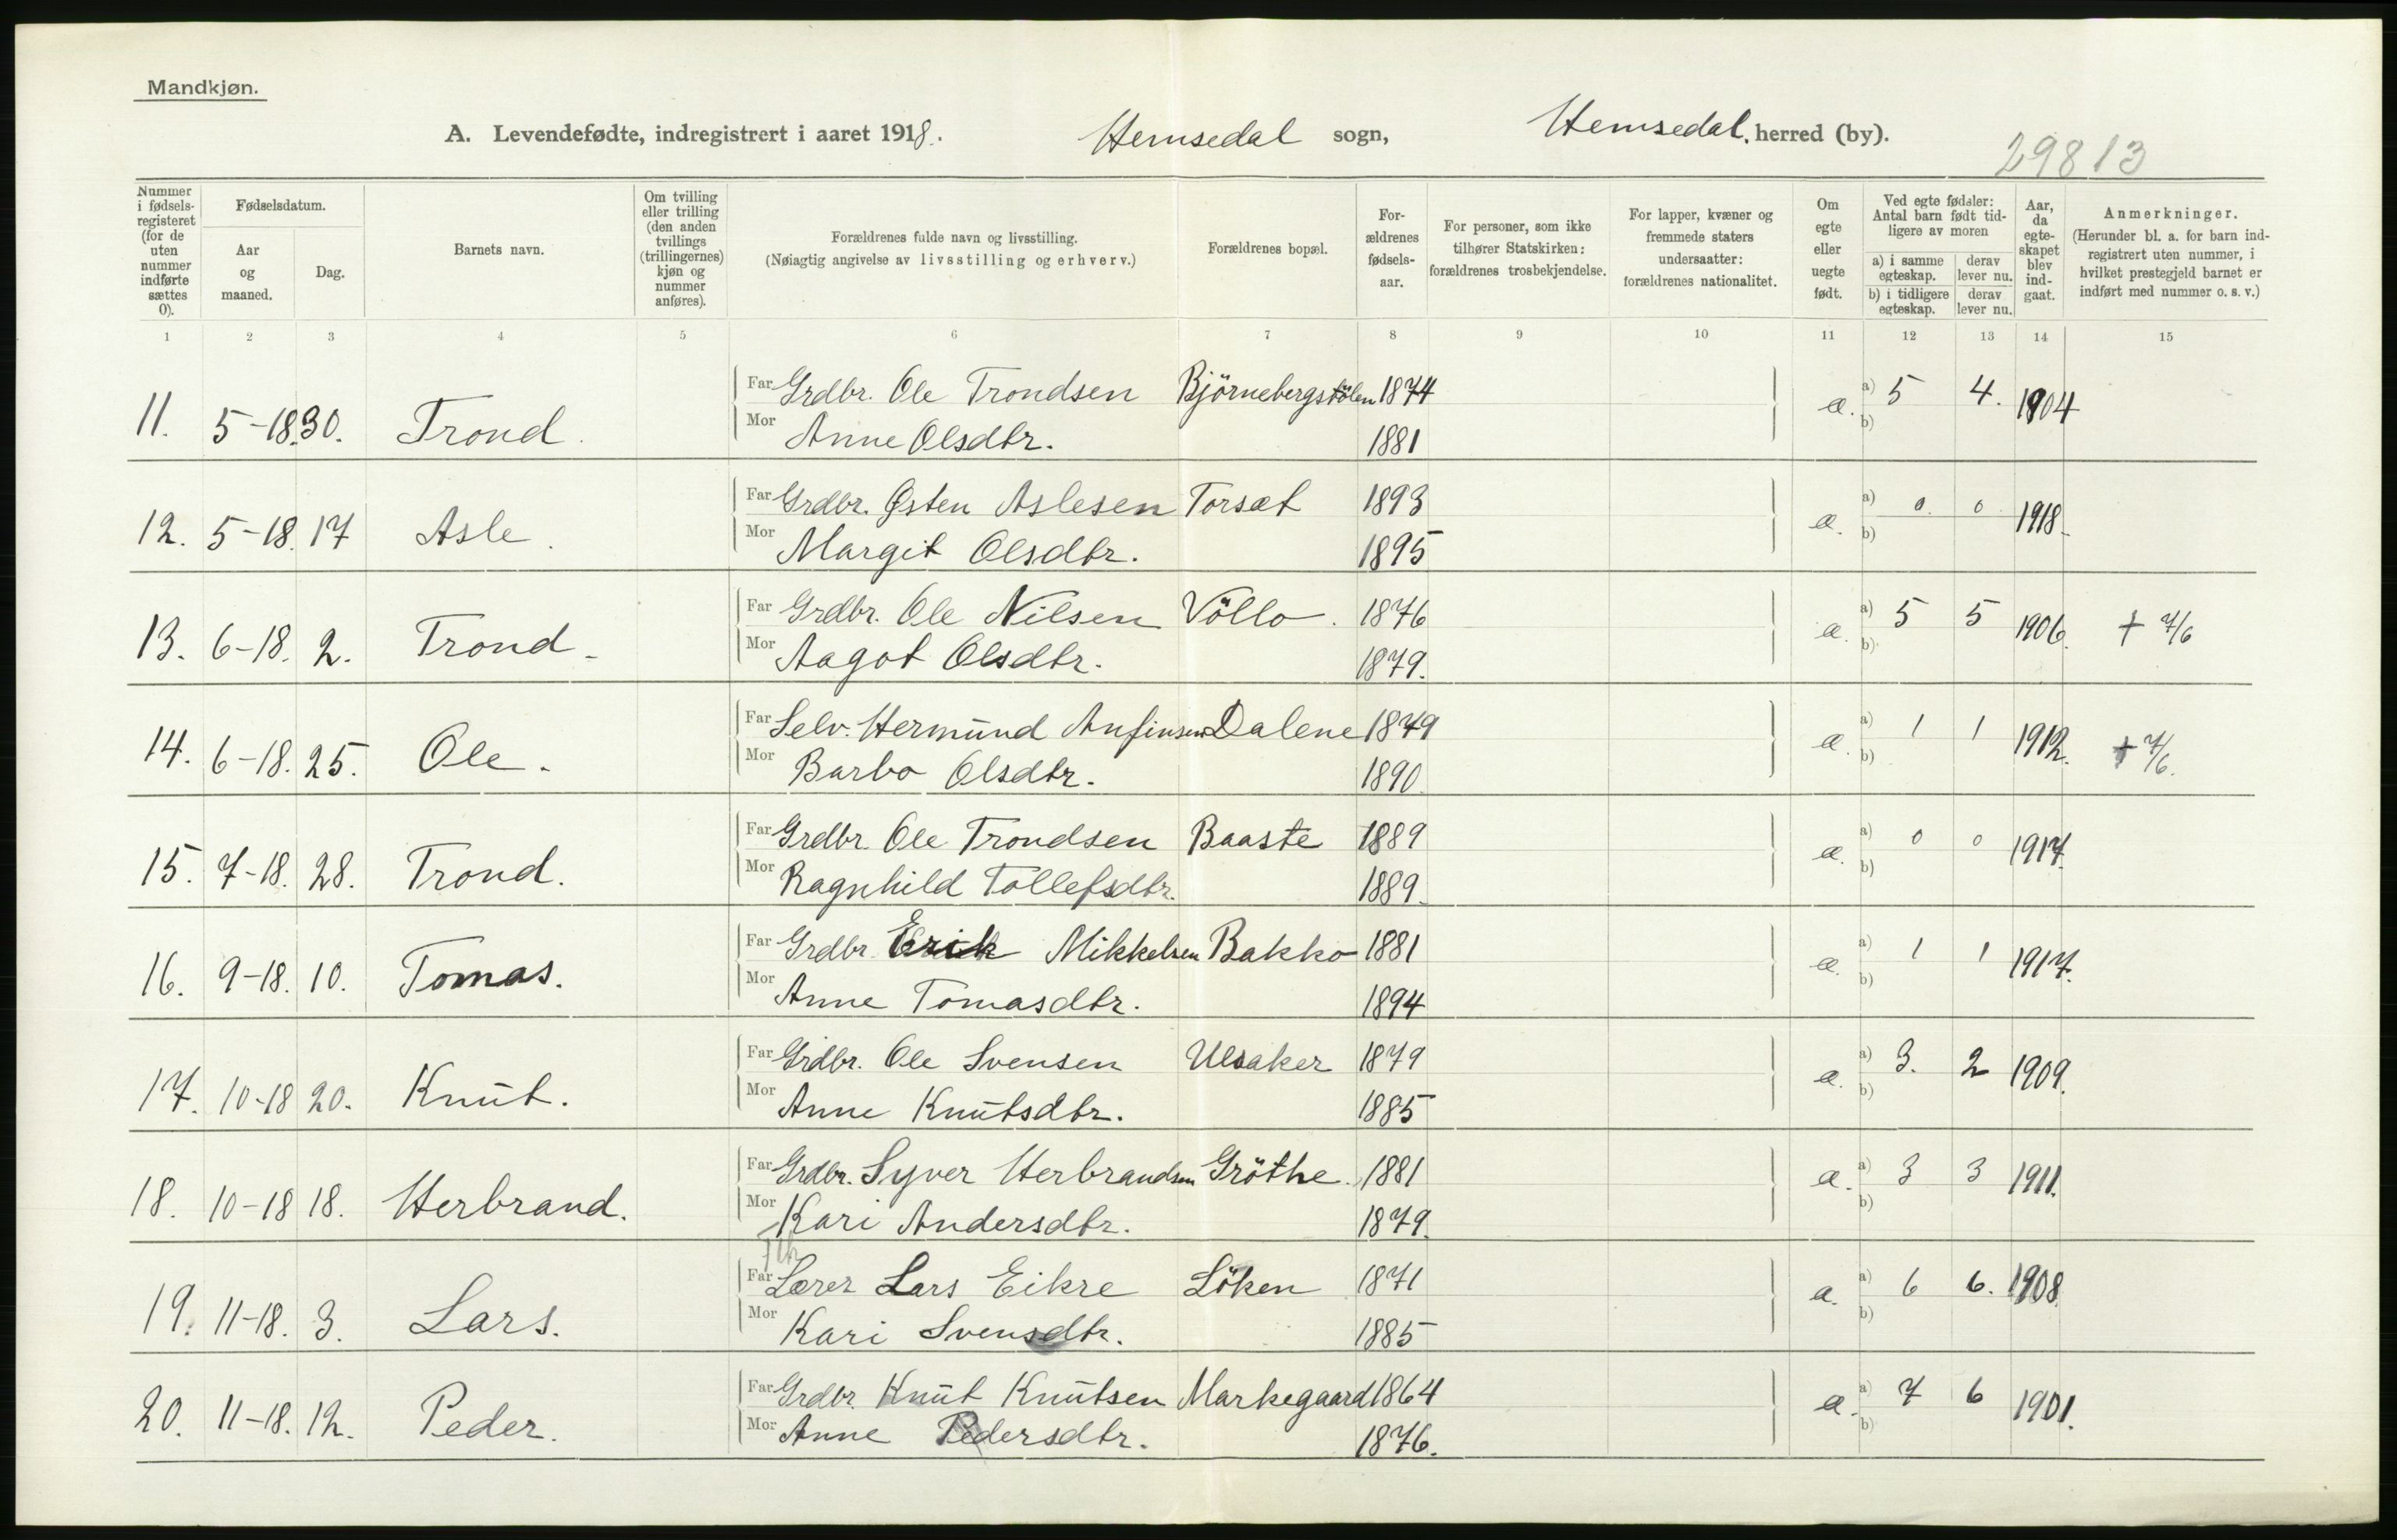 Mandkjøn.
A. Levendefødte, indregistrert i aaret 1918. Hemsedal sogn, Hemsedal. herred (by).
29813
Nummer i fødsels-registeret (for de uten nummer indførte sættes 0).
Fødselsdatum.
Aar og maaned.
Dag.
Barnets navn.
Om tvilling eller trilling (den anden tvillings (trillingernes) kjøn og nummer anføres).
Forældrenes fulde navn og livsstilling.
(Nøiagtig angivelse av livsstilling og erhverv.)
Forældrenes bopæl.
For-ældrenes fødsels-aar.
For personer, som ikke tilhører Statskirken: forældrenes trosbekjendelse.
For lapper, kvæner og fremmede staters undersaatter: forældrenes nationalitet.
Om egte eller uegte født.
Ved egte fødsler: Antal barn født tid-ligere av moren
a) i samme egteskap. derav lever nu.
b) i tidligere egteskap. derav lever nu.
Aar, da egte-skapet blev ind-gaat.
Anmerkninger.
(Herunder bl. a. for barn ind-registrert uten nummer, i hvilket prestegjeld barnet er indført med nummer o. s. v.)
1 2 3 4 5 6 7 8 9 10 11 12 13 14 15
11. 5-18. 30. Trond. Far Grdbr. Ole Trondsen Björnebergstölen 1874 æ. a) 5 4. 1904
Mor Anne Olsdtr. 1881 b)
12. 5-18. 17 Asle. Far Grdbr. Østen Aslesen Torset 1893 æ. a) 0. 0 1918.
Mor Margit Olsdtr. 1895 b)
13. 6-18. 2. Trond. Far Grdbr. Ole Nilsen Völlo. 1876 æ. a) 5 5 1906. + 7/6
Mor Aagot Olsdtr. 1879. b)
14. 6-18. 25. Ole. Far Selv. Hermund Anfinsen Dalene 1879 æ. a) 1 1 1912. + 7/6.
Mor Barbo Olsdtr. 1890. b)
15. 7-18. 28. Trond. Far Grdbr. Ole Trondsen Baaste 1889 æ. a) 0 0 1917.
Mor Ragnhild Tollefsdtr. 1889. b)
16. 9-18. 10. Tomas. Far Grdbr. Erik Mikkelsen Bakko 1881 æ. a) 1 1 1917.
Mor Anne Tomasdtr. 1894 b)
17. 10-18 20. Knut. Far Grdbr. Ole Svensen Ulsaker 1879 æ. a) 3. 2 1909.
Mor Anne Knutsdtr. 1885 b)
18. 10-18 18. Herbrand. Far Grdbr. Syver Herbrandsen Gröthe. 1881 æ. a) 3 3 1911.
Mor Kari Andersdtr. 1879. b)
19. 11-18. 3. Lars. Far Lærer Lars Eikre Löken 1871 æ. a) 6 6. 1908
Mor Kari Svensdtr. 1885 b)
20. 11-18. 12. Peder. Far Grdbr. Knut Knutsen Markegaard 1864 æ. a) 7 6 1901.
Mor Anne Pedersdtr. 1876. b)